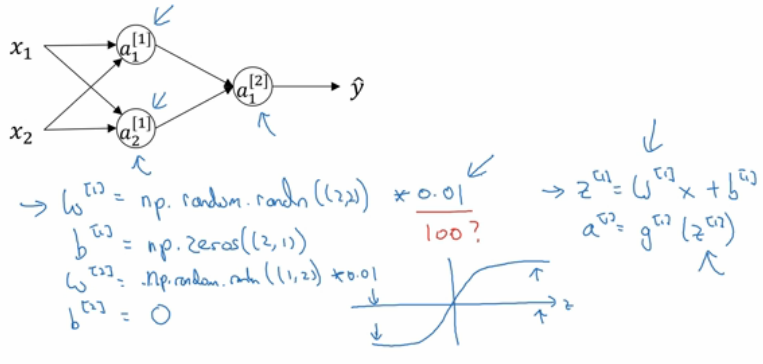 x₁
x₂
a₁^[1]
a₂^[1]
a₁^[2]
ŷ
→ W^[1] = np.random.randn((2,2)) * 0.01
100?
b^[1] = np.zeros((2,1))
W^[2] = np.random.randn((1,2)) * 0.01
b^[2] = 0
→ z^[1] = W^[1] x + b^[1]
a^[1] = g^[1](z^[1])
z